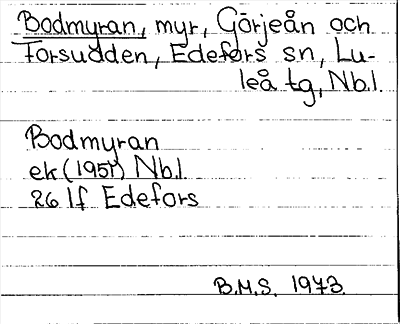 Bodmyran, myr, Görjeån och
Forsudden, Edefors sn, Lu-
leå tg, Nb.l.
Bodmyran
ek (1951) Nb.l.
26 lf Edefors
B.M.S. 1973.